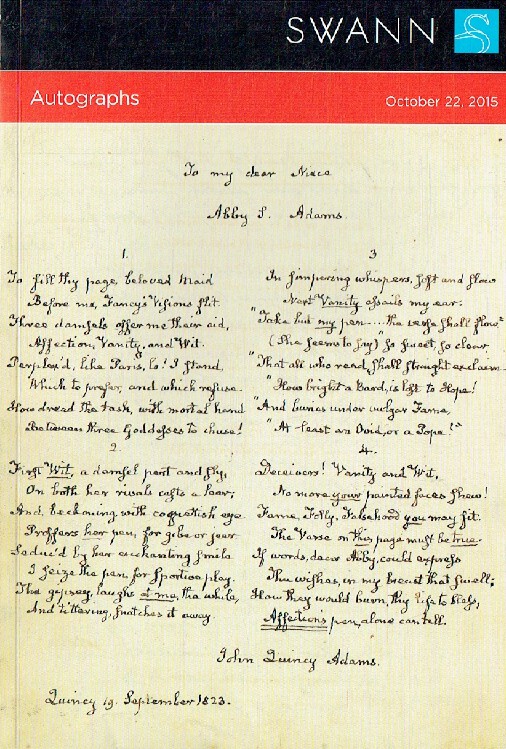 SWANN
Autographs
October 22, 2015
To my dear Niece
Abby S. Adams.
1.
To fill thy page, beloved Maid
Before me, Fancy's Visions flit
Three damsels offer me their aid,
Affection, Vanity, and Wit.
Perplex'd, like Paris, lo! I stand,
Which to prefer, and which refuse
How dread the task, with mortal hand
Between three Goddesses to chuse!
2.
First Wit, a damsel pert and sly,
On both her rivals casts a leer,
And, beckoning with coquetish eye
Proffers her pen, for gibe or jeer
Seduc'd by her enchanting smile
I seize the pen for sportive play.
The gypsey, laughs at me, the while,
And tittering, snatches it away.
3
In simpering whispers, soft and slow
Next Vanity assails my ear:
"Take but my pen....the verse shall flow"
(She seems to say) so sweet, so clear
"That all who read, shall straight exclaim
"How bright a Bard, is lost to Hope!
"And buries under vulgar Fame,
"At least an Ovid, or a Pope!"
4.
Deceivers! Vanity and Wit,
No more your painted faces shew!
Fame, Folly, Falsehood you may fit.
The Verse on this page must be true.
If words, dear Abby, could express
The wishes, in my breast that swell;
How they would burn, thy life to bless,
Affections pen, alone can tell.
John Quincy Adams.
Quincy 19. September 1823.